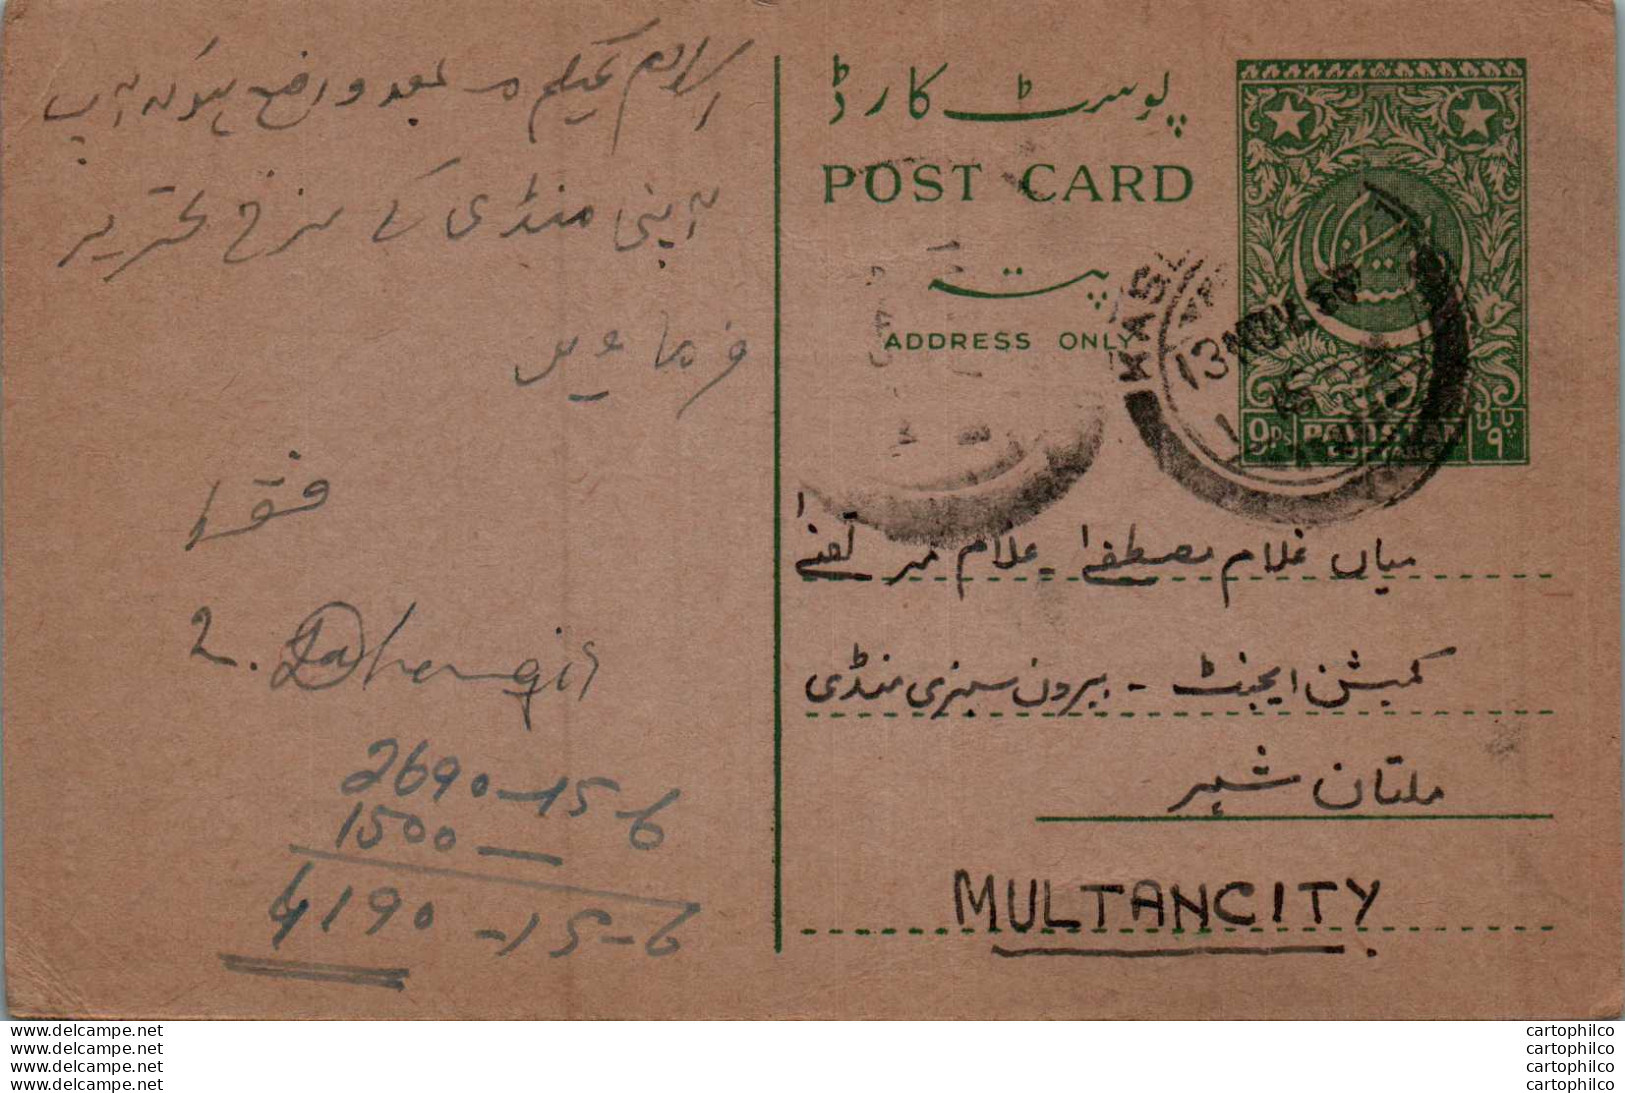 السلام علیکم کے بعد واضح ہو کہ آپ
اپنی منڈی کے نرخ تحریر
فرماویں
فقط
Jahangir
2690-15-6
1500 —
4190-15-6
پوسٹ کارڈ
POST CARD
پتہ
ADDRESS ONLY
KAS
13 NOV
9 Ps
PAKISTAN
POSTAGE
میاں غلام مصطفےٰ - غلام مرتضےٰ
کمیشن ایجنٹ - بیرون سبزی منڈی
ملتان شہر
MULTANCITY
www.delcampe.net
www.delcampe.net
www.delcampe.net
www.delcampe.net
cartophilco
cartophilco
cartophilco
cartophilco